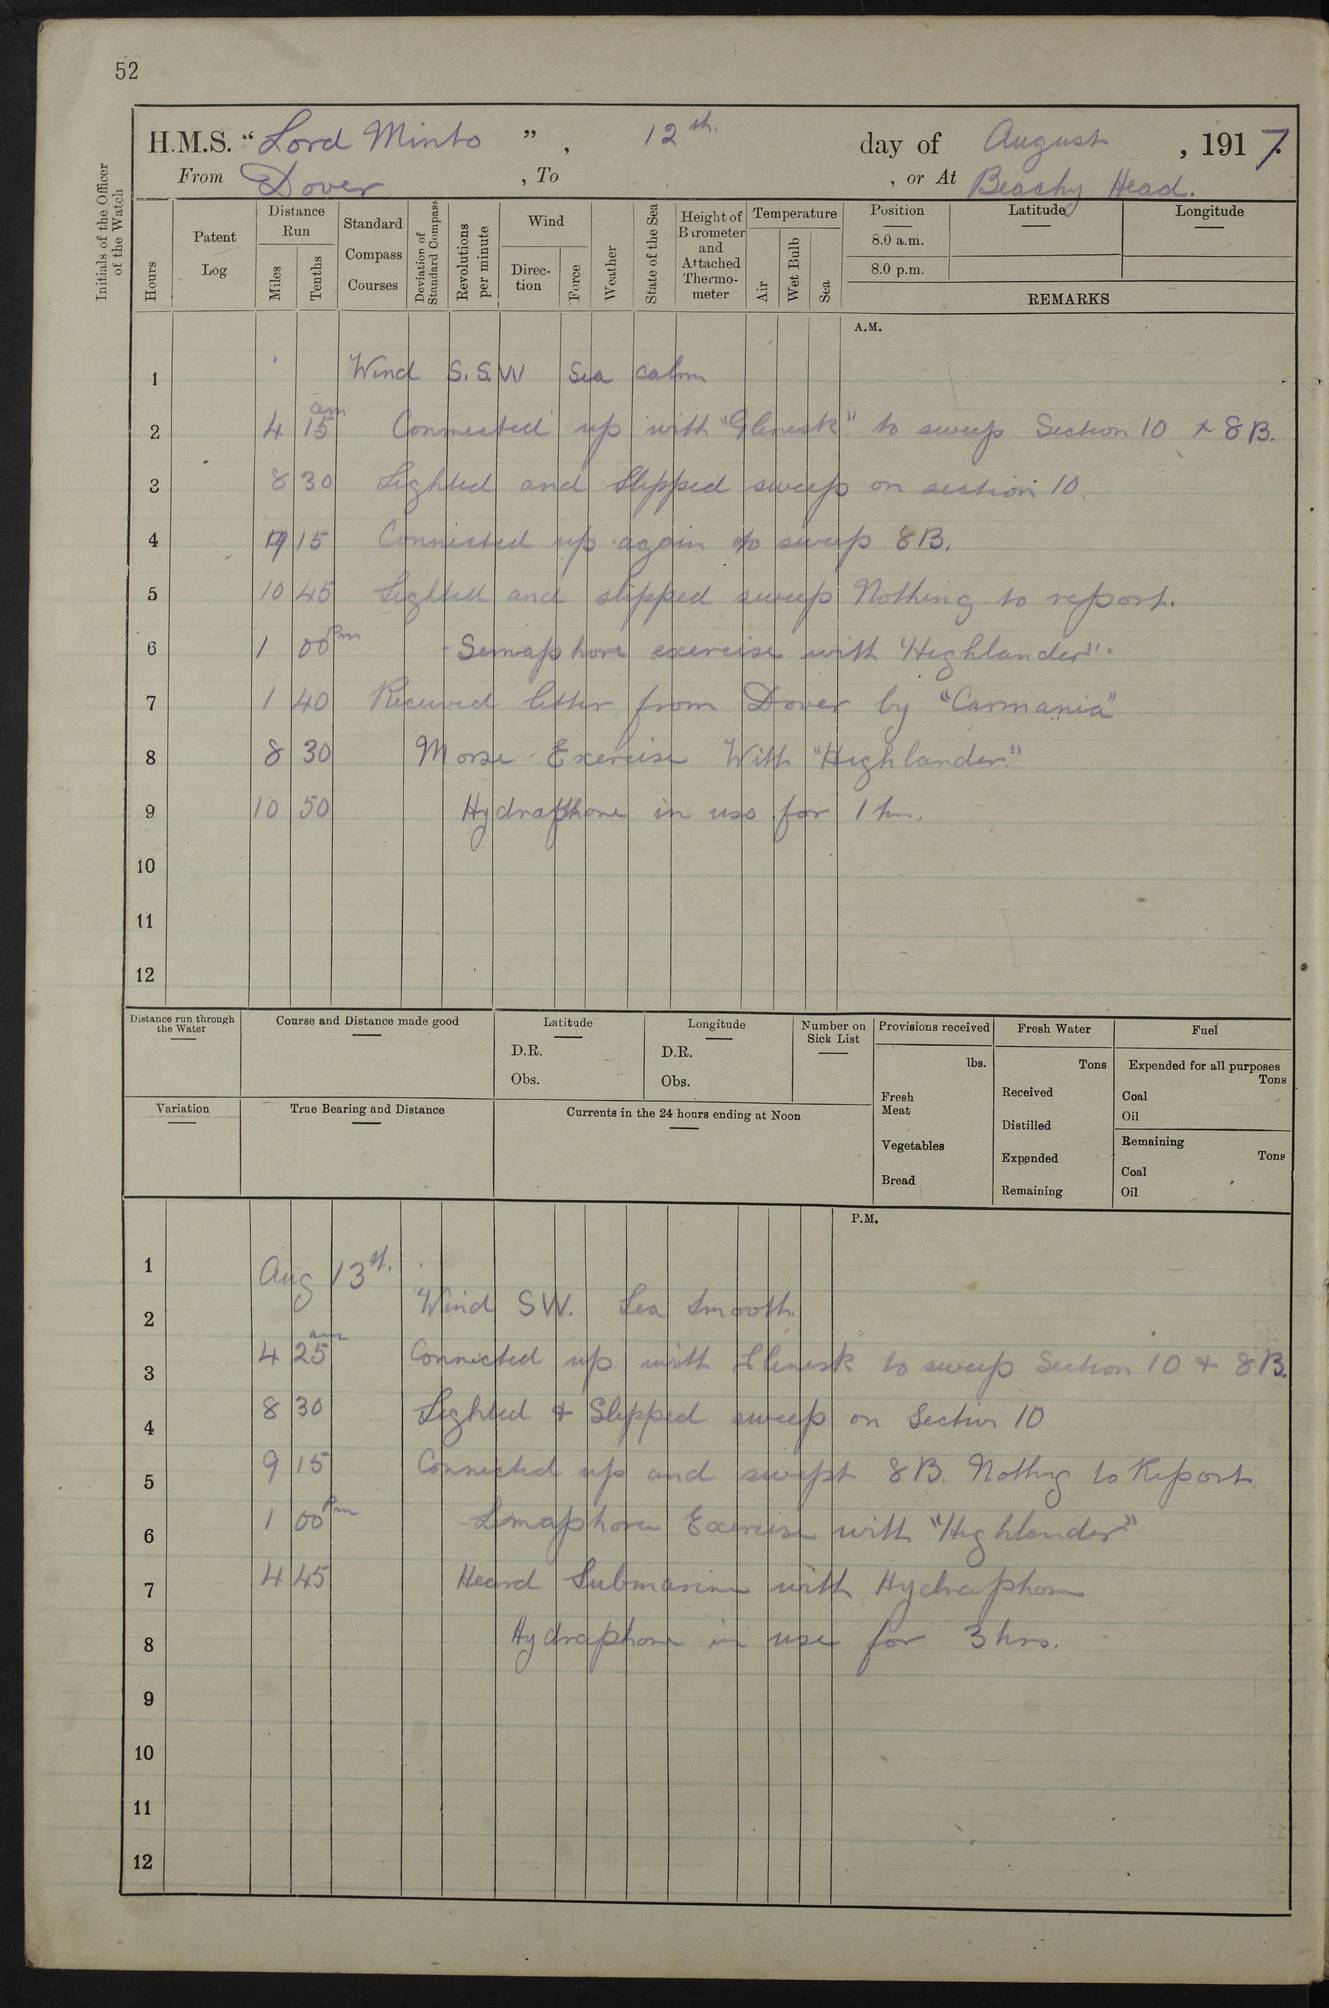 52
H.M.S. “Lord Minto”, 12th. day of August, 1917.
From Dover, To , or At Beachy Head.
Initials of the Officer of the Watch
Hours
Patent Log
Distance Run
Miles
Tenths
Standard Compass Courses
Deviation of Standard Compass
Revolutions per minute
Wind
Direction
Force
Weather
State of the Sea
Height of Barometer and Attached Thermometer
Temperature
Air
Wet Bulb
Sea
Position
8.0 a.m.
8.0 p.m.
Latitude
Longitude
REMARKS
A.M.
1 Wind S.S.W Sea calm
2 4 15 am Connected up with "Glenesk" to sweep Section 10 & 8B.
3 8 30 Lighted and Slipped sweep on section 10.
4 9 15 Connected up again to sweep 8B.
5 10 45 Lighted and slipped sweep Nothing to report.
6 1 00 Pm - Semaphore exercise with "Highlander".
7 1 40 Received letter from Dover by "Carmania"
8 8 30 Morse - Exercise With "Highlander"
9 10 50 Hydraphone in use for 1 hr.
10
11
12
Distance run through the Water
Course and Distance made good
Latitude
D.R.
Obs.
Longitude
D.R.
Obs.
Number on Sick List
Provisions received
lbs.
Fresh Meat
Vegetables
Bread
Fresh Water
Tons
Received
Distilled
Expended
Remaining
Fuel
Expended for all purposes
Tons
Coal
Oil
Remaining
Tons
Coal
Oil
Variation
True Bearing and Distance
Currents in the 24 hours ending at Noon
P.M.
1 Aug 13th.
2 Wind SW. Sea Smooth.
3 4 25 am Connected up with Glenesk to sweep Section 10 & 8B.
4 8 30 Lighted & Slipped sweep on Section 10
5 9 15 Connected up and swept 8B. Nothing to Report
6 1 00 Pm Semaphore Exercise with "Highlander"
7 4 45 Heard Submarine with Hydraphone
8 Hydraphone in use for 3 hrs.
9
10
11
12